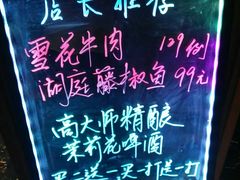 店长推荐
雪花牛肉 129/例
湖庭藤椒鱼 99元
高大师精酿
茉莉花啤酒
买二送一买一打送一打